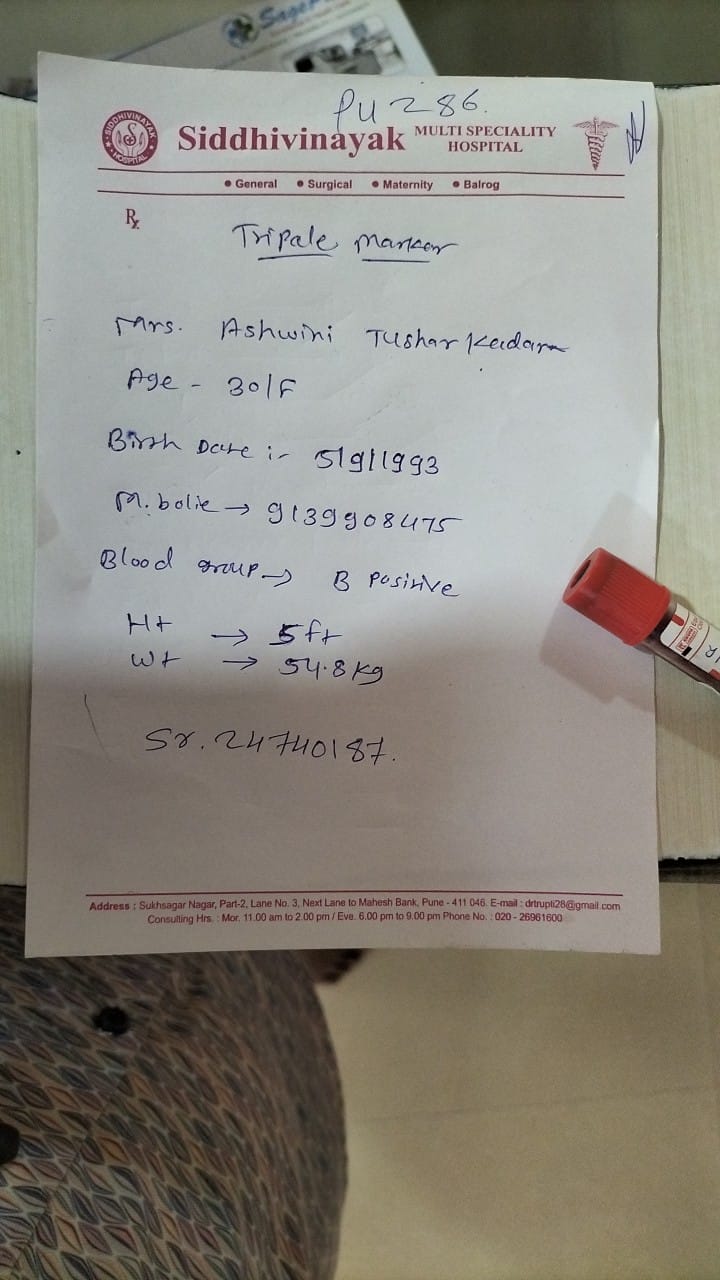 Sage
PU 286.
SIDDHIVINAYAK HOSPITAL
Siddhivinayak MULTI SPECIALITY HOSPITAL
• General • Surgical • Maternity • Balrog
Rx
Tripale marker
Mrs. Ashwini Tushar Kadam
Age - 30/F
Birth Date :- 5/9/1993
M. bolie → 9139908475
Blood group → B positive
Ht → 5 ft
Wt → 54.8 kg
Sr. 24740187.
Address : Sukhsagar Nagar, Part-2, Lane No. 3, Next Lane to Mahesh Bank, Pune - 411 046. E-mail : drtrupti28@gmail.com
Consulting Hrs. : Mor. 11.00 am to 2.00 pm / Eve. 6.00 pm to 9.00 pm Phone No. : 020 - 26961600